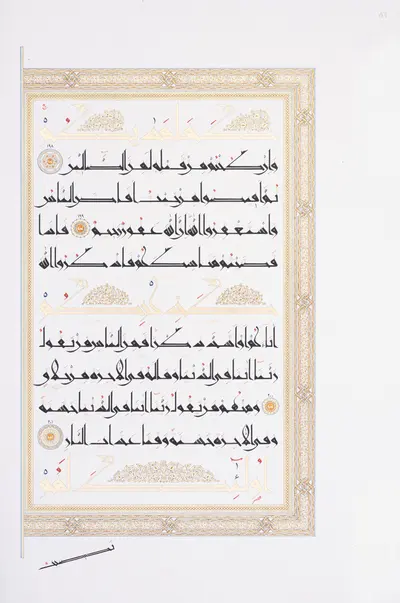 كما هدىكم
وإن كنتم من قبله لمن الضالين ١٩٨
ثم أفيضوا من حيث أفاض الناس
واستغفروا الله إن الله غفور رحيم ١٩٩ فإذا
قضيتم مناسككم فاذكروا الله
كذكركم
آباءكم أو أشد ذكرا فمن الناس من يقول
ربنا آتنا في الدنيا وما له في الآخرة من خلاق
٢٠٠ ومنهم من يقول ربنا آتنا في الدنيا حسنة
وفي الآخرة حسنة وقنا عذاب النار ٢٠١
أولئك لهم
نصيب